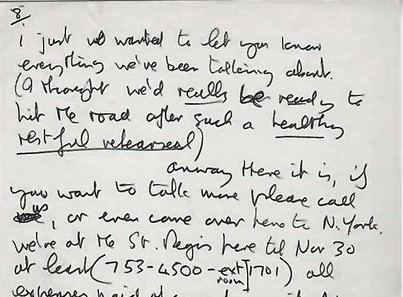 8/
i just wanted to let you know
everything we've been talking about.
(I thought we'd really be ready to
hit the road after such a healthy
restful rehearsal)
anyway there it is, if
you want to talk more please call
us, or even come over here to N. York.
we're at the St. Regis here til Nov 30
at least (753-4500 - ext/room 1701) all
expenses paid